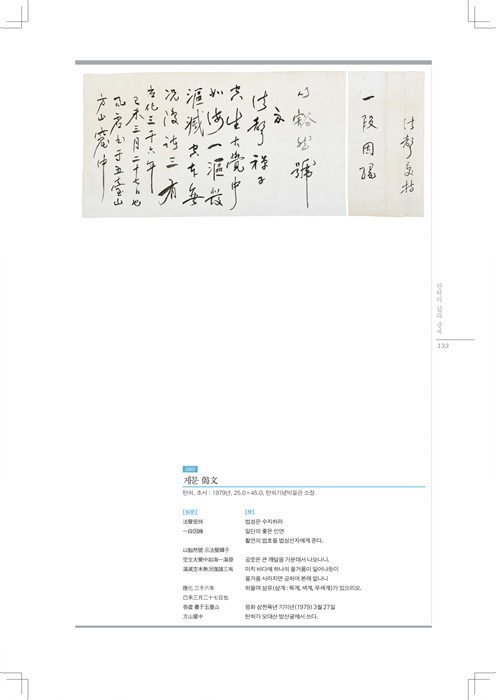 法聲受持
一段因緣
以豁然號
示
法聲禪子
空生大覺中
如海一漚發
漚滅空本無
況復諸三有
應化三千六年
己未三月二十七日也
呑虛書于五臺山
方山窟中
133
게문 偈文
탄허, 초서 | 1979년, 25.0×45.0, 탄허기념박물관 소장
[원문]
法聲受持
一段因緣
以豁然號 示法聲禪子
空生大覺中如海一漚發
漚滅空本無況復諸三有
應化 三千六年
己未三月二十七日也
呑虛 書于五臺山
方山窟中
[뜻]
법성은 수지하라
일단의 좋은 인연
활연의 법호를 법성선자에게 준다.
큰 깨달음 가운데서 나오나니,
마치 바다에 하나의 물거품이 일어나듯이
물거품 사라지면 공하여 본래 없나니
하물며 삼유(삼계 : 욕계, 색계, 무색계)가 있으리오.
응화 삼천육년 기미년(1979) 3월 27일
탄허가 오대산 방산굴에서 쓰다.